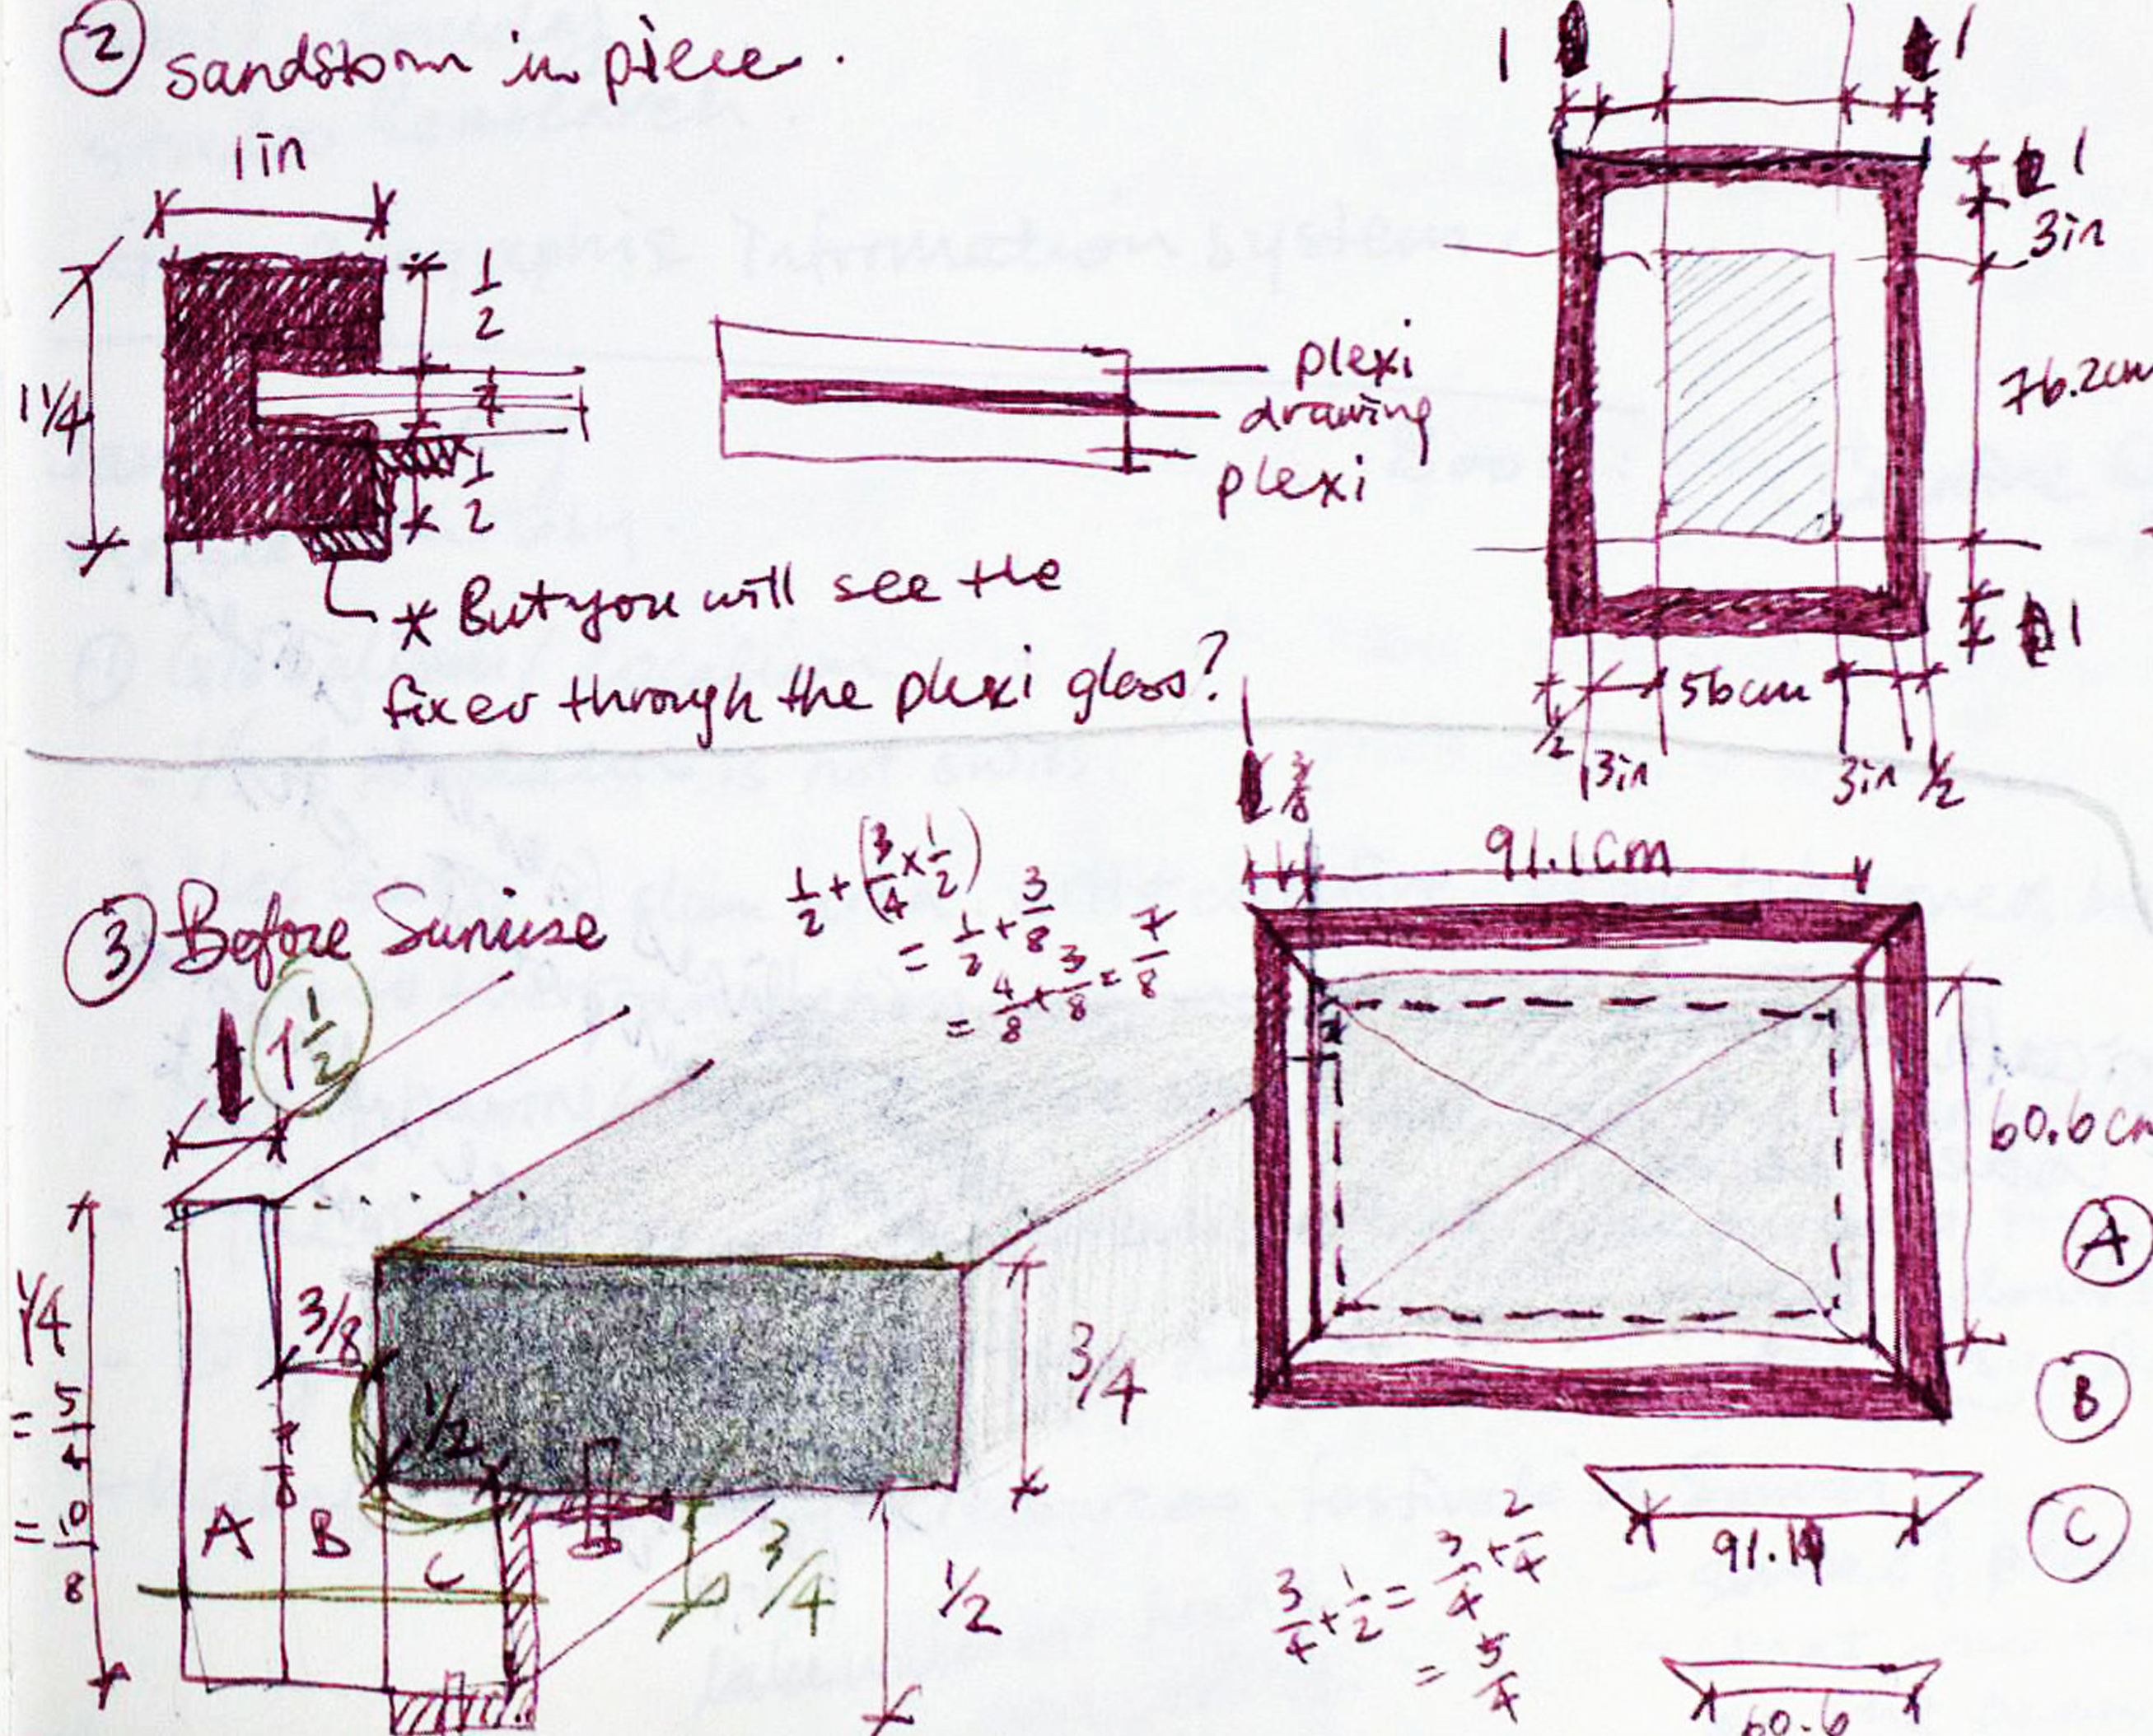 ② sandstorm in piece.
1in
1 1/4
1/2
1/4
1/2
plexi
drawing
plexi
* But you will see the
fixer through the plexi glass?
1 1
1
3in
76.2cm
1
56cm
1/2 3in 3in 1/2
③ Before Sunrise
1 1/2
1/2 + (3/4 × 1/2)
= 1/2 + 3/8
= 4/8 + 3/8 = 7/8
1 3/8
91.1cm
60.6cm
1/4
= 5/4
= 10/8
3/8
1/2
3/4
A B C
3/4
1/2
Ⓐ
Ⓑ
Ⓒ
91.1
3/4 + 1/2 = 3/4 + 2/4
= 5/4
60.6